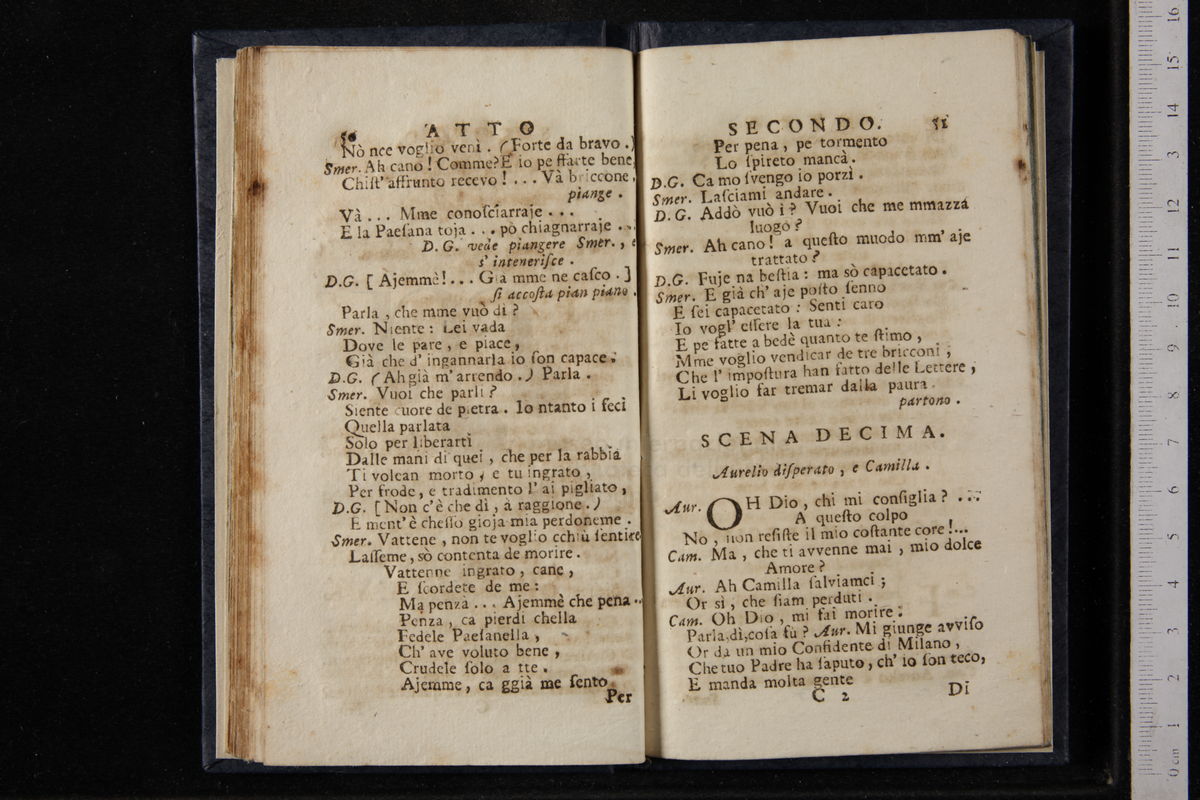 50 ATTO
Nò nce voglio venì . (Forte da bravo .)
Smer. Ah cano ! Comme? E io pe ffarte bene
Chiſt' affrunto recevo ! . . . Và briccone,
piange .
Và . . . Mme conoſciarraje . . .
E la Paeſana toja . . . pò chiagnarraje . . .
D. G. vede piangere Smer. , e
s' inteneriſce .
D.G. [ Ajemmè ! . . . Già mme ne caſco . ]
ſi accoſta pian piano .
Parla , che mme vuò dì ?
Smer. Niente : Lei vada
Dove le pare , e piace ,
Già che d' ingannarla io ſon capace .
D.G. (Ah già m' arrendo .) Parla .
Smer. Vuoi che parli ?
Siente cuore de pietra . Io ntanto i feci
Quella parlata
Solo per liberarti
Dalle mani di quei , che per la rabbia
Ti volean morto , e tu ingrato ,
Per frode , e tradimento l' ai pigliato ,
D.G. [ Non c'è che dì , à raggione .)
E ment' è cheſſo gioja mia perdoneme .
Smer. Vattene , non te voglio cchiù ſentire
Laſſeme , sò contenta de morire .
Vattenne ingrato , cane ,
E ſcordete de me :
Ma penzà . . . Ajemmè che pena . .
Penza , ca pierdi chella
Fedele Paeſanella ,
Ch' ave voluto bene ,
Crudele ſolo a tte .
Ajemme , ca ggià me ſento
Per
SECONDO. 51
Per pena , pe tormento
Lo ſpireto mancà .
D.G. Ca mo ſvengo io porzì .
Smer. Laſciami andare .
D. G. Addò vuò i ? Vuoi che me mmazza
luogo ?
Smer. Ah cano ! a queſto muodo mm' aje
trattato ?
D.G. Fuje na beſtia : ma sò capacetato .
Smer. E già ch' aje poſto ſenno
E ſei capacetato : Senti caro
Io vogl' eſſere la tua :
E pe fatte a bedè quanto te ſtimo ,
Mme voglio vendicar de tre bricconi ,
Che l' impoſtura han fatto delle Lettere ,
Li voglio far tremar dalla paura .
partono .
SCENA DECIMA.
Aurelio diſperato , e Camilla .
Aur. OH Dio , chi mi conſiglia ? . . .
A queſto colpo
No , non reſiſte il mio coſtante core ! . . .
Cam. Ma , che ti avvenne mai , mio dolce
Amore ?
Aur. Ah Camilla ſalviamci ;
Or sì , che ſiam perduti .
Cam. Oh Dio , mi fai morire :
Parla, dì, coſa fù ? Aur. Mi giunge avviſo
Or da un mio Confidente di Milano ,
Che tuo Padre ha ſaputo , ch' io ſon teco,
E manda molta gente
C 2
Di